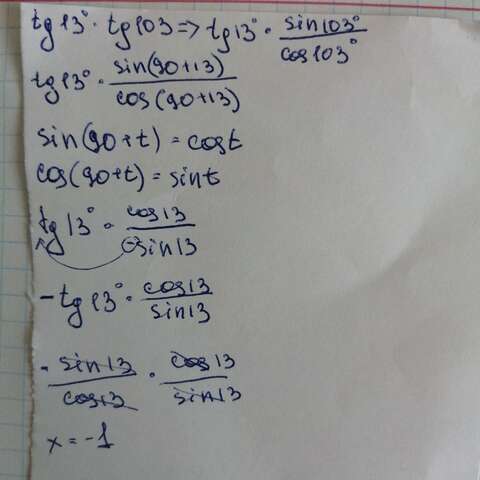 tg13° · tg103 => tg13° · sin103°/cos103°
tg13° · sin(90+13)/cos(90+13)
sin(90+t) = cost
cos(90+t) = sint
tg13° · cos13/-sin13
-tg13° · cos13/sin13
- sin13/cos13 · cos13/sin13
x = -1